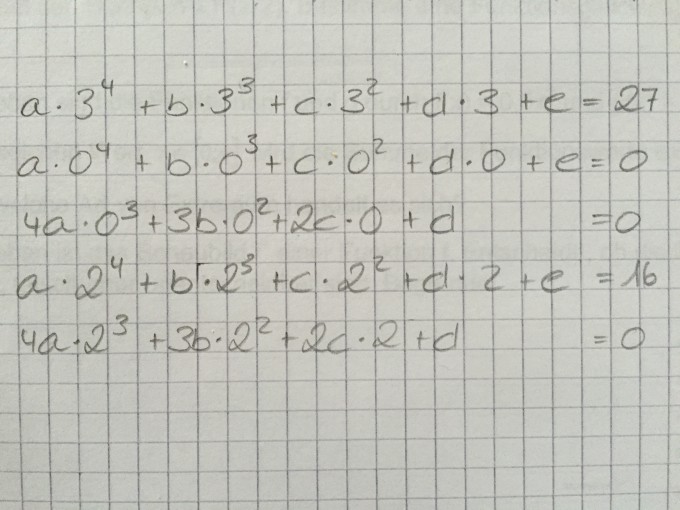 a · 3⁴ + b · 3³ + c · 3² + d · 3 + e = 27
a · 0⁴ + b · 0³ + c · 0² + d · 0 + e = 0
4a · 0³ + 3b · 0² + 2c · 0 + d = 0
a · 2⁴ + b · 2³ + c · 2² + d · 2 + e = 16
4a · 2³ + 3b · 2² + 2c · 2 + d = 0